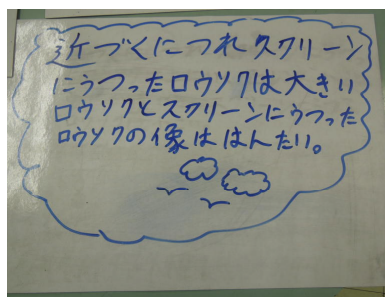 近づくにつれスクリーン
にうつったロウソクは大きい
ロウソクとスクリーンにうつった
ロウソクの像ははんたい。